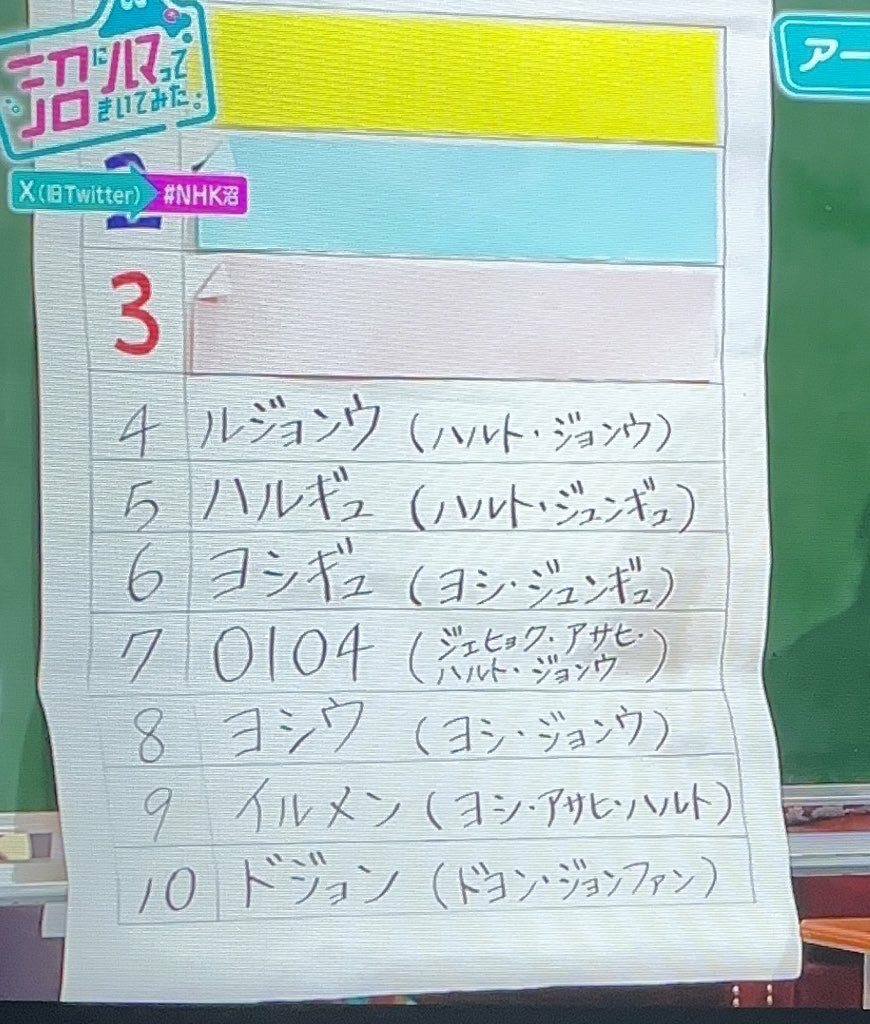 沼にハマって
きいてみた
アー
X(旧Twitter) #NHK沼
2
3
4 ルジョンウ (ハルト・ジョンウ)
5 ハルギュ (ハルト・ジュンギュ)
6 ヨシギュ (ヨシ・ジュンギュ)
7 0104 (ジェヒョク・アサヒ・
ハルト・ジョンウ)
8 ヨシウ (ヨシ・ジョンウ)
9 イルメン (ヨシ・アサヒ・ハルト)
10 ドジョン (ドヨン・ジョンファン)